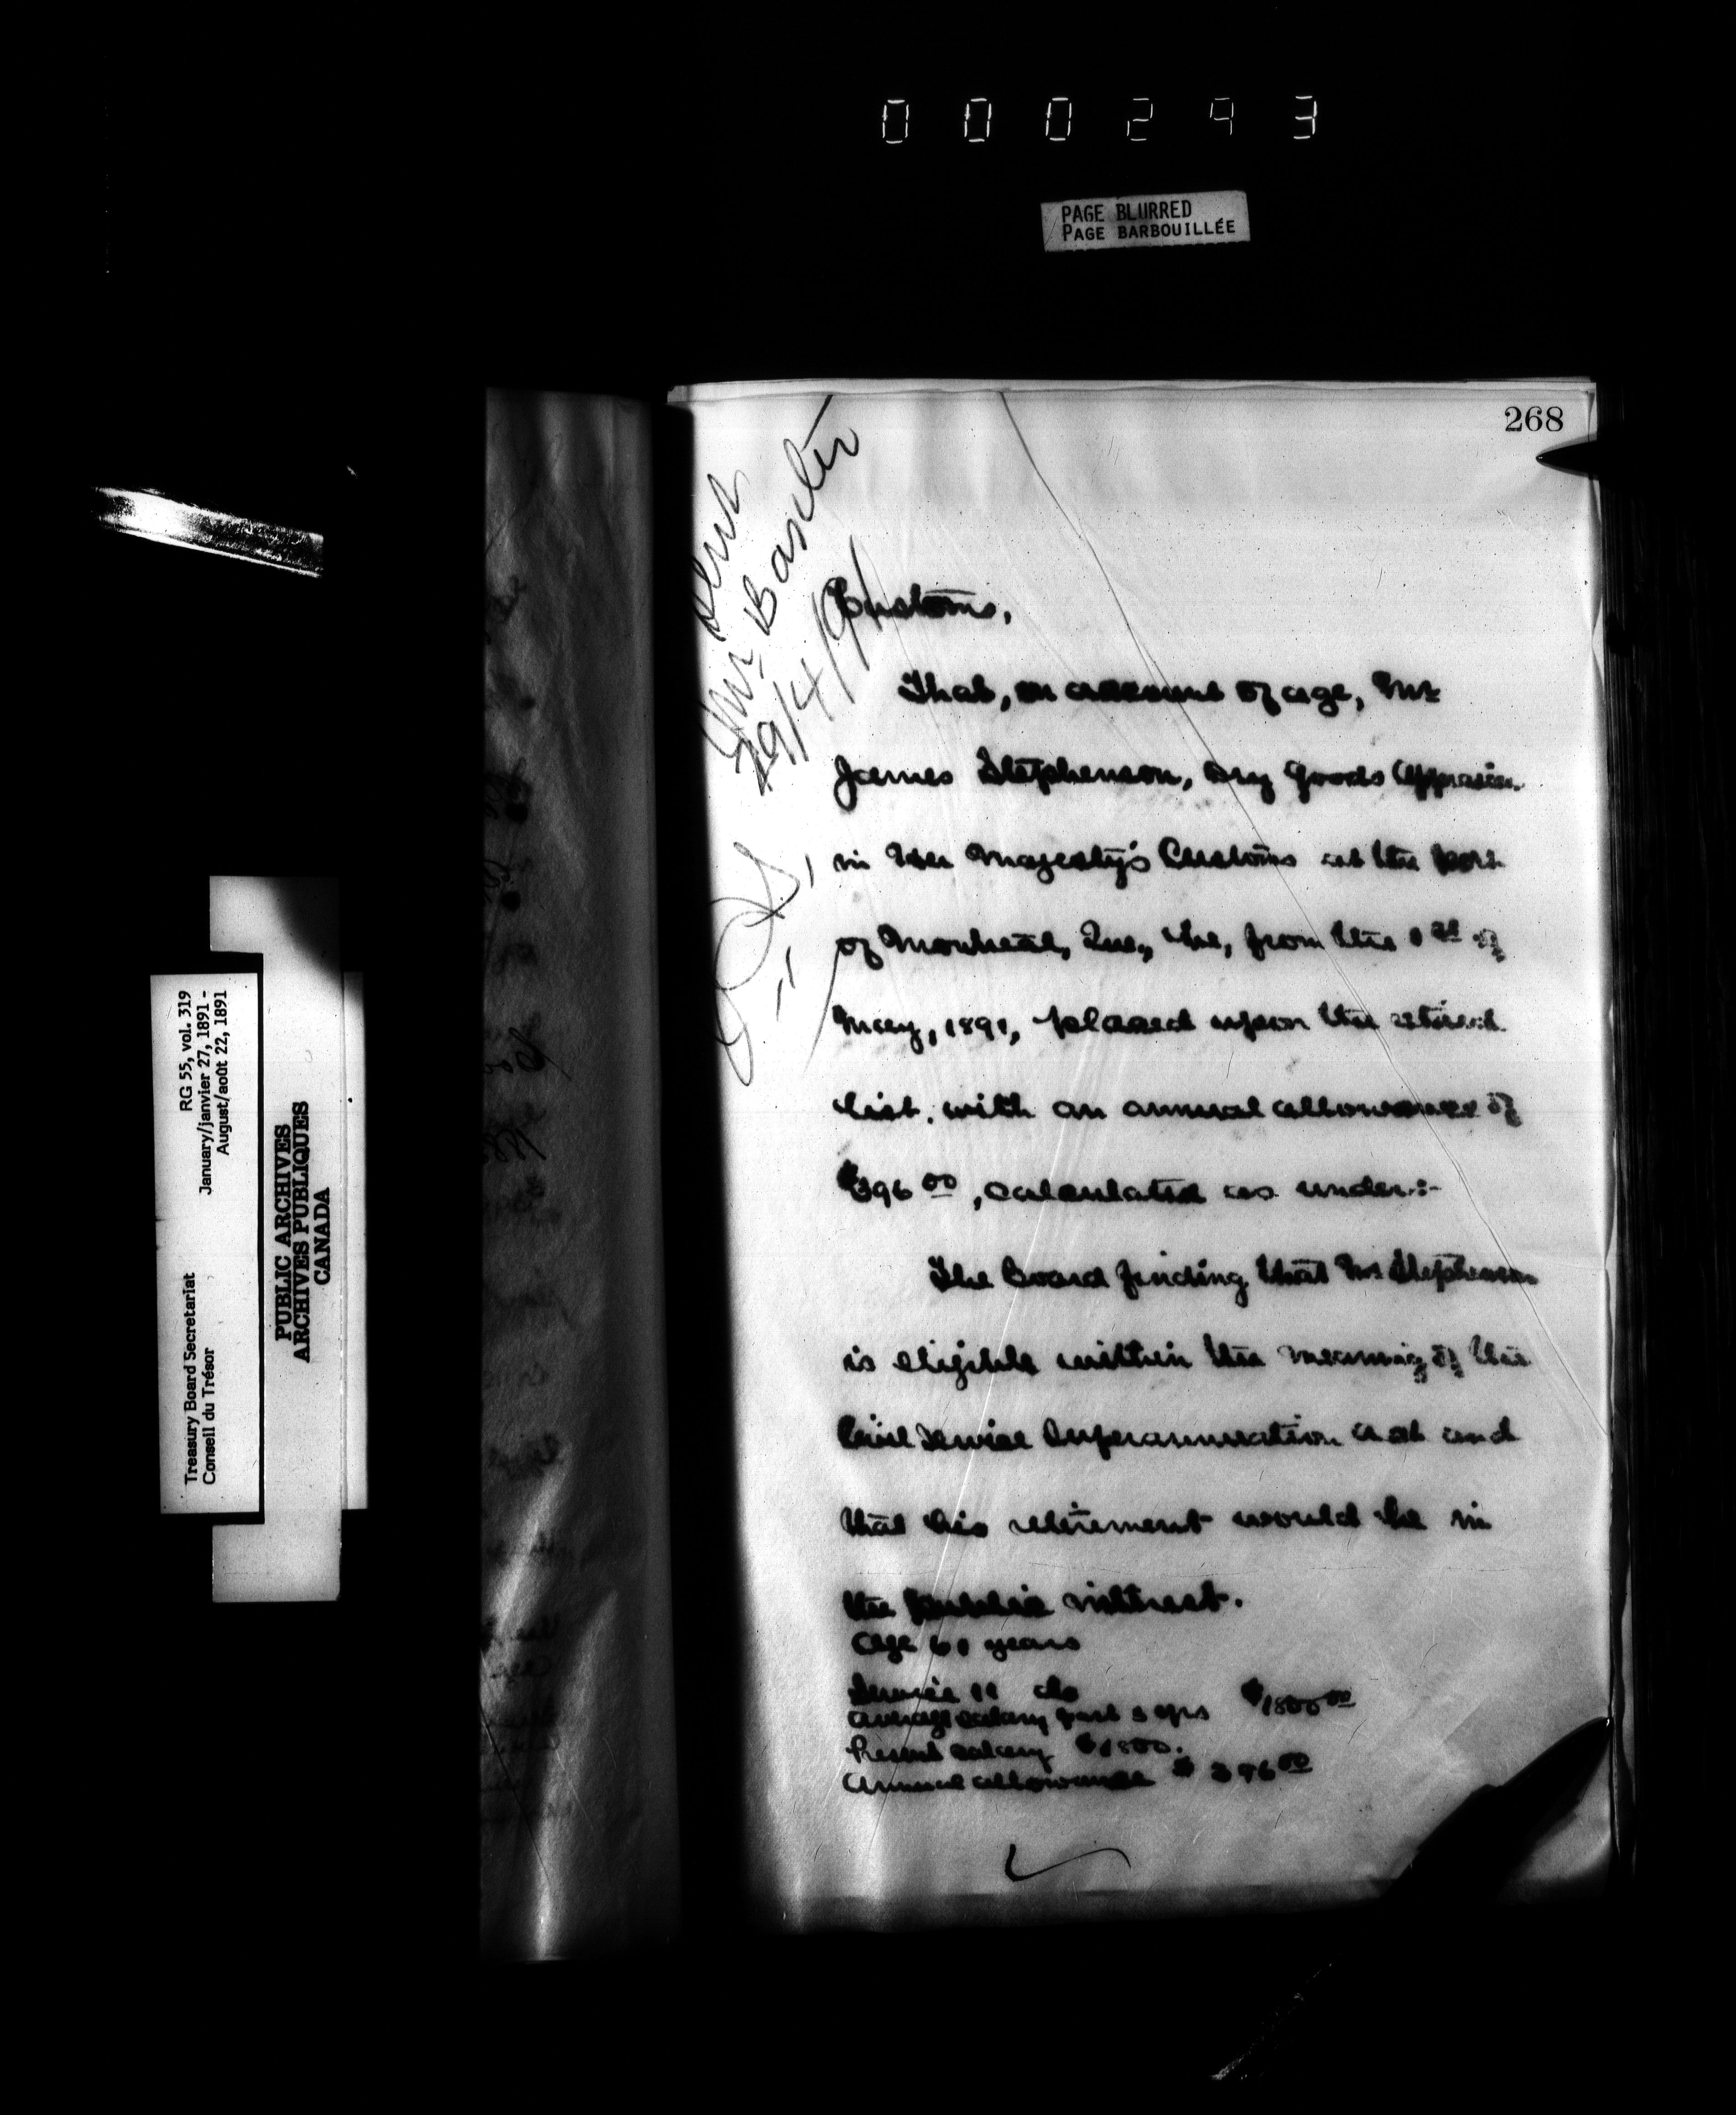 000293
PAGE BLURRED
PAGE BARBOUILLÉE
268
Sent
Mr Baxter
29/4/91
Customs,
That, on account of age, Mr
James Stephenson, Dry Goods Appraiser
in Her Majesty's Customs at the port
of Montreal, Que., be, from the 1st of
May, 1891, placed upon the retired
list, with an annual allowance of
$396 00, calculated as under:-
The Board finding that Mr Stephenson
is eligible within the meaning of the
Civil Service Superannuation Act and
that his retirement would be in
the public interest.
Age 61 years
Service 11 do
Average salary past 3 yrs $1800 00
Present salary $1800.
Annual allowance $396 00
Treasury Board Secretariat
Conseil du Trésor
RG 55, vol. 319
January/janvier 27, 1891 -
August/août 22, 1891
PUBLIC ARCHIVES
ARCHIVES PUBLIQUES
CANADA